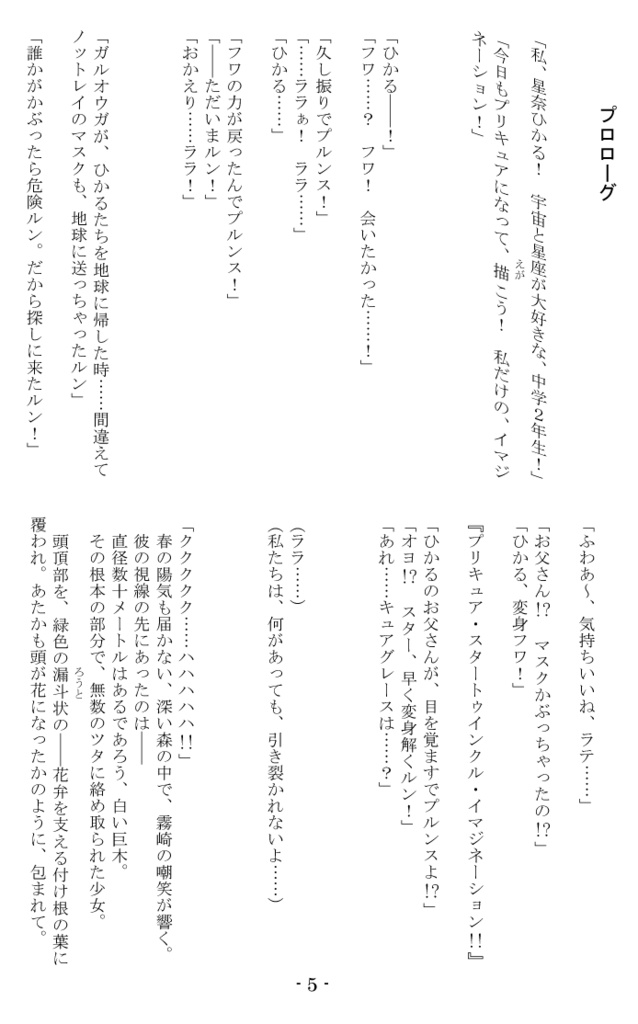 プロローグ
「私、星奈ひかる！　宇宙と星座が大好きな、中学２年生！」
「今日もプリキュアになって、描こう！　私だけの、イマジ
えが
ネーション！」
「ひかる――！」
「フワ……？　フワ！　会いたかった……！」
「久し振りでプルンス！」
「……ララぁ！　ララ……」
「ひかる……」
「フワの力が戻ったんでプルンス！」
「――ただいまルン！」
「おかえり……ララ！」
「ガルオウガが、ひかるたちを地球に帰した時……間違えて
ノットレイのマスクも、地球に送っちゃったルン」
「誰かがかぶったら危険ルン。だから探しに来たルン！」
「ふわあ～、気持ちいいね、ラテ……」
「お父さん!?　マスクかぶっちゃったの!?」
「ひかる、変身フワ！」
『プリキュア・スタートゥインクル・イマジネーション!!』
「ひかるのお父さんが、目を覚ますでプルンスよ!?」
「オヨ!?　スター、早く変身解くルン！」
「あれ……キュアグレースは……？」
(ララ……)
(私たちは、何があっても、引き裂かれないよ……)
「ククククク……ハハハハハ!!」
春の陽気も届かない、深い森の中で、霧崎の嘲笑が響く。
彼の視線の先にあったのは――
直径数十メートルはあるであろう、白い巨木。
その根本の部分で、無数のツタに絡め取られた少女。
頭頂部を、緑色の漏斗状の――花弁を支える付け根の葉に
ろうと
覆われ。あたかも頭が花になったかのように、包まれて。
- 5 -